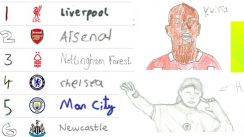 1 Liverpool
2 Arsenal
3 Nottingham Forest
4 chelsea
5 Man City
6 Newcastle